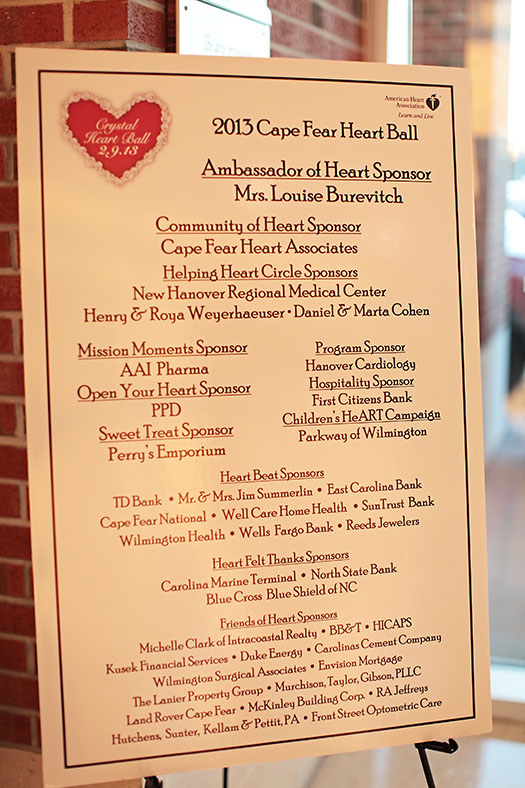 Crystal
Heart Ball
2.9.13
American Heart
Association
Learn and Live
2013 Cape Fear Heart Ball
Ambassador of Heart Sponsor
Mrs. Louise Burevitch
Community of Heart Sponsor
Cape Fear Heart Associates
Helping Heart Circle Sponsors
New Hanover Regional Medical Center
Henry & Roya Weyerhaeuser • Daniel & Marta Cohen
Mission Moments Sponsor
AAI Pharma
Open Your Heart Sponsor
PPD
Sweet Treat Sponsor
Perry's Emporium
Program Sponsor
Hanover Cardiology
Hospitality Sponsor
First Citizens Bank
Children's HeART Campaign
Parkway of Wilmington
Heart Beat Sponsors
TD Bank • Mr. & Mrs. Jim Summerlin • East Carolina Bank
Cape Fear National • Well Care Home Health • SunTrust Bank
Wilmington Health • Wells Fargo Bank • Reeds Jewelers
Heart Felt Thanks Sponsors
Carolina Marine Terminal • North State Bank
Blue Cross Blue Shield of NC
Friends of Heart Sponsors
Michelle Clark of Intracoastal Realty • BB&T • HICAPS
Kusek Financial Services • Duke Energy • Carolinas Cement Company
Wilmington Surgical Associates • Envision Mortgage
The Lanier Property Group • Murchison, Taylor, Gibson, PLLC
Land Rover Cape Fear • McKinley Building Corp. • RA Jeffreys
Hutchens, Sunter, Kellam & Pettit, PA • Front Street Optometric Care